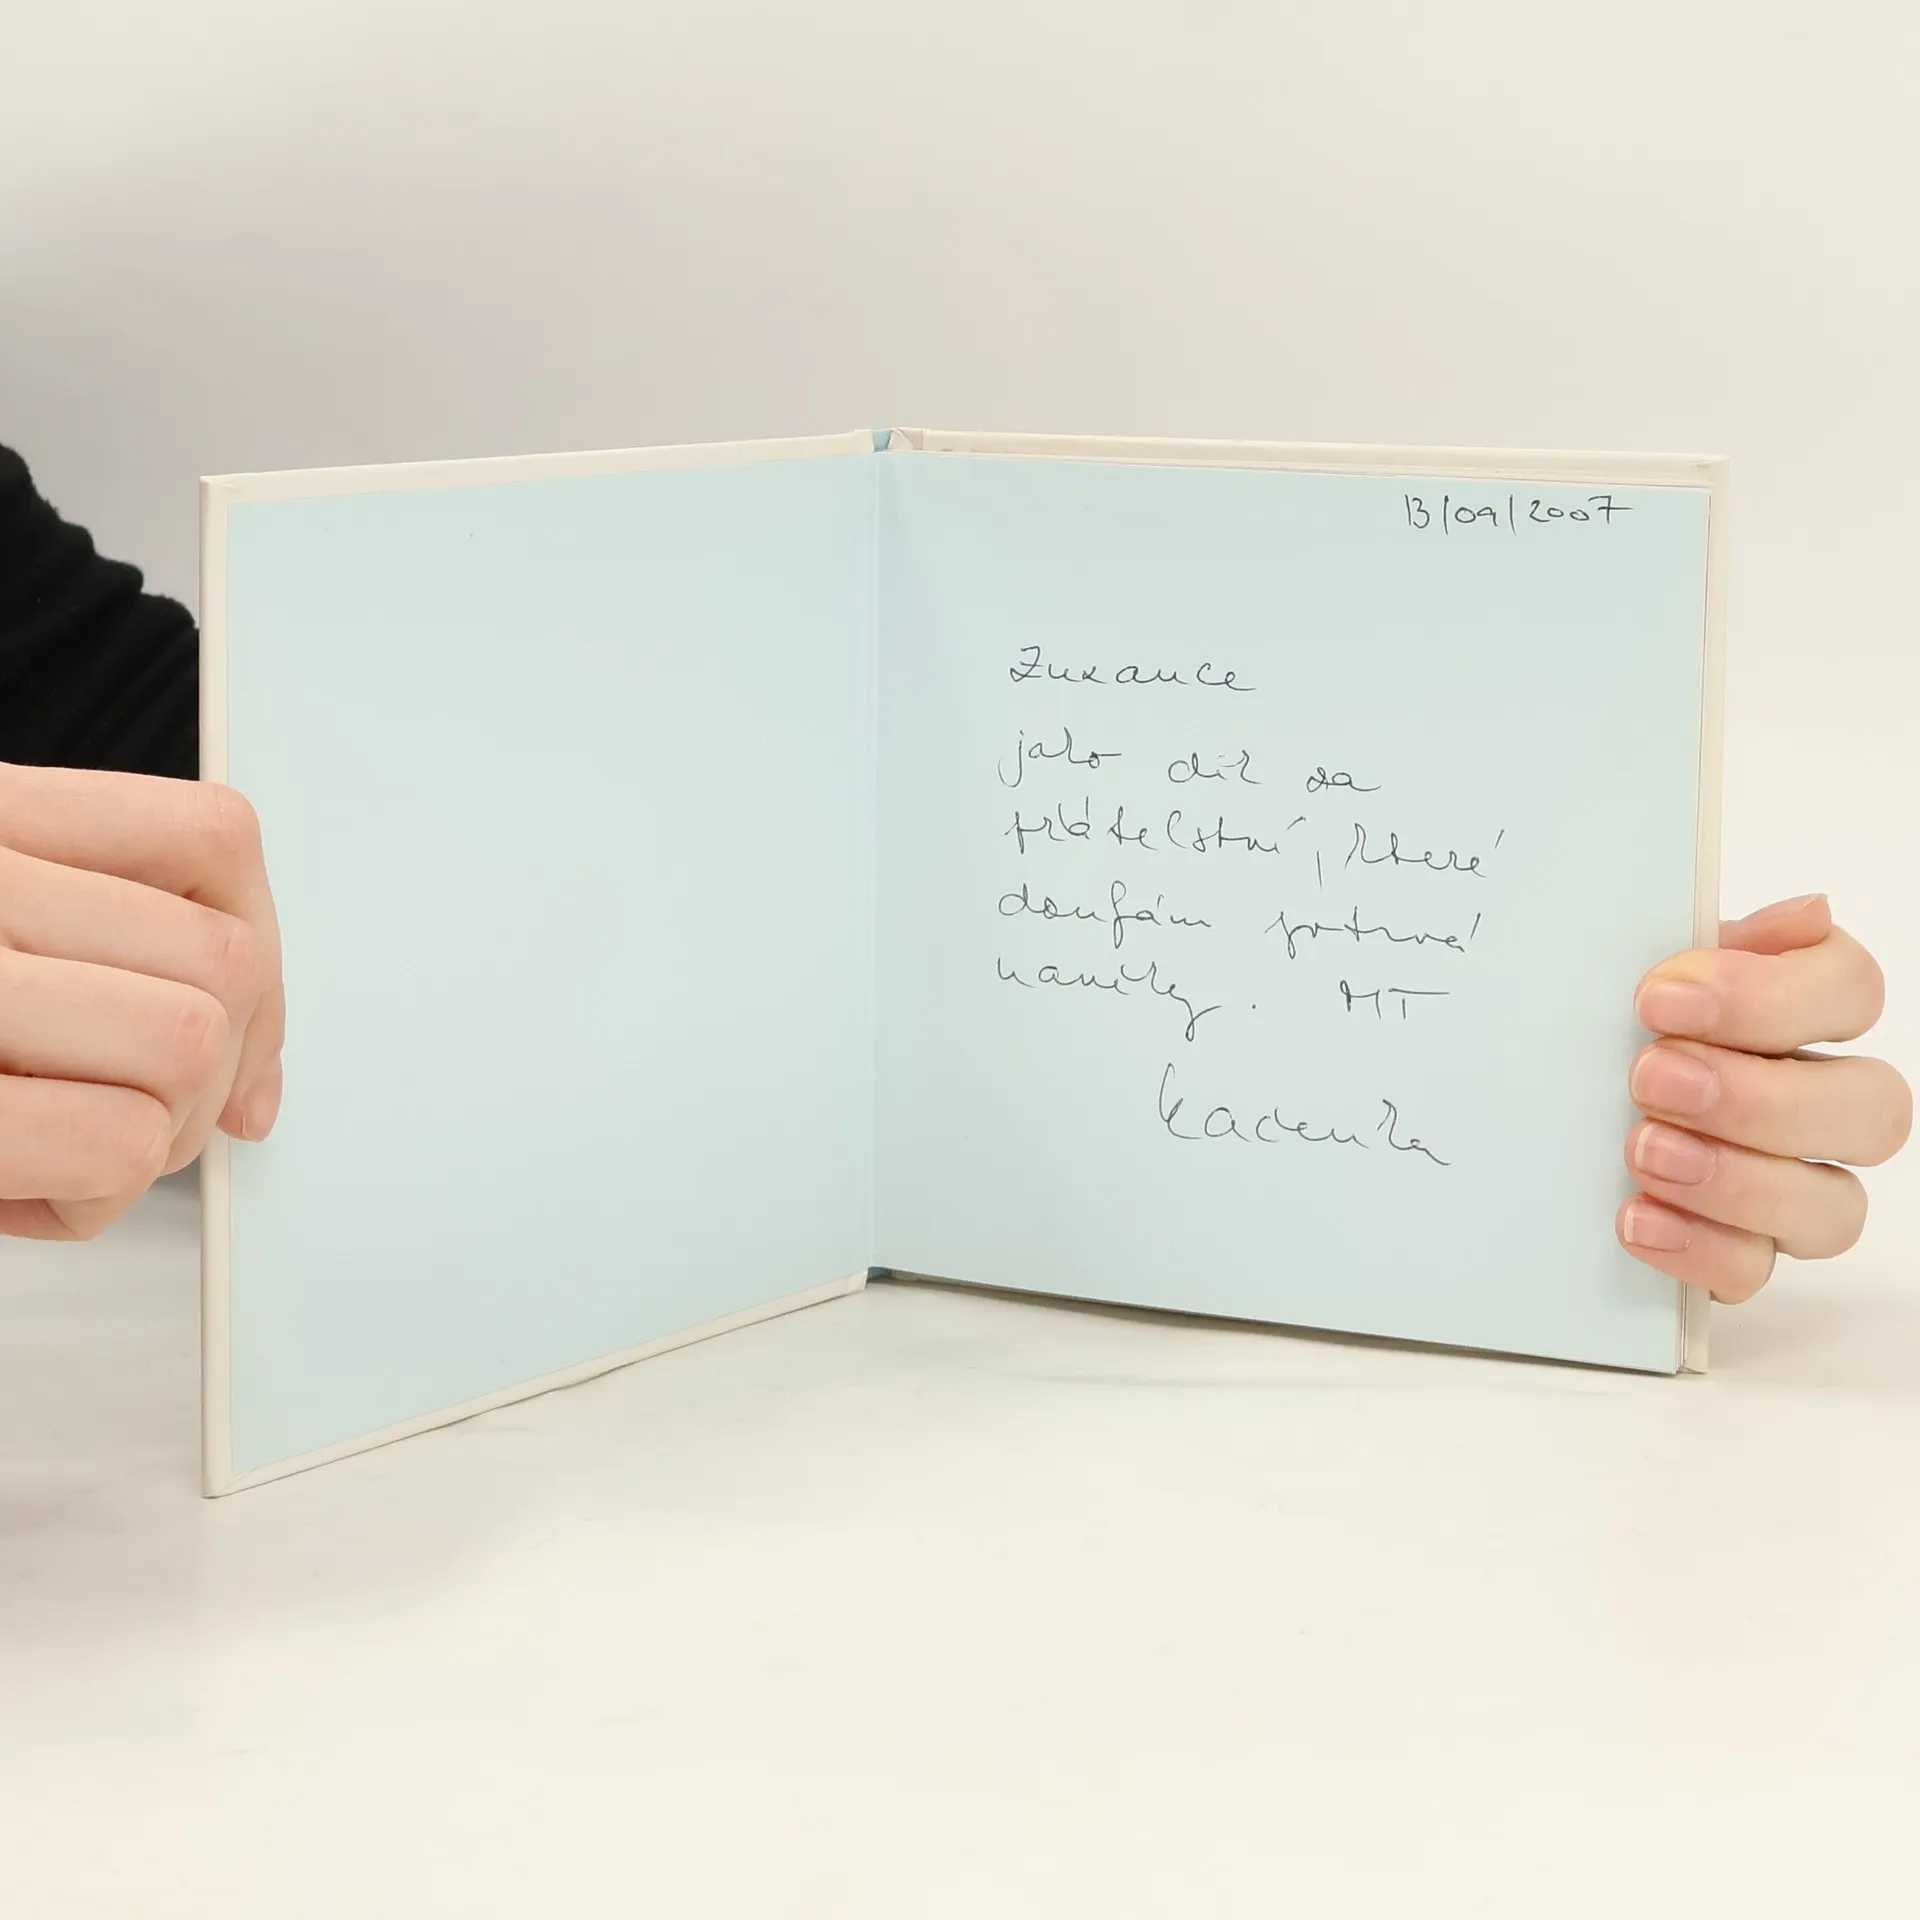 13/09/2007
Zuzance
jako dík za
přátelství, které
doufám potrvá
navěky. MT
Kačenka